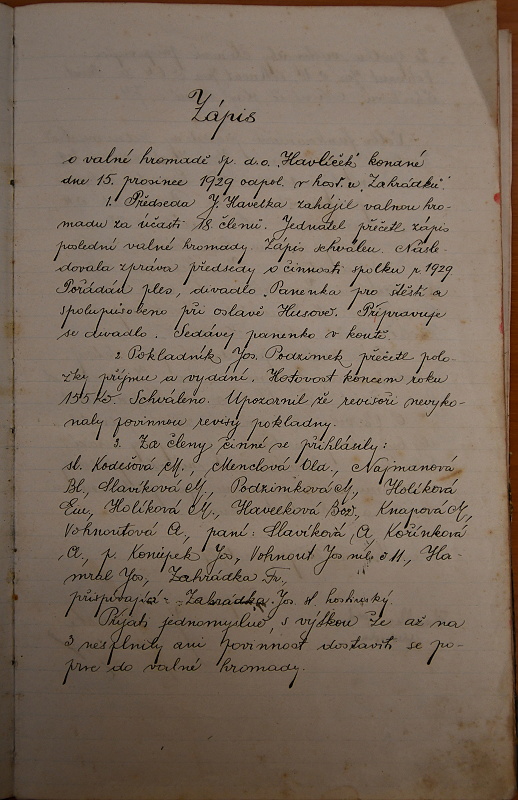 Zápis
o valné hromadě sp. d. o. "Havlíček" konané
dne 15. prosince 1929 odpol. v host. u "Zahrádků".
1. Předseda J. Havelka zahájil valnou hro-
madu za účasti 18 členů. Jednatel přečetl zápis
poslední valné hromady. Zápis schválen. Násle-
dovala zpráva předsedy o činnosti spolku r. 1929
Pořádán ples, divadlo "Panenka pro štěstí" a
spolupůsobeno při oslavě Husově. Připravuje
se divadlo "Sedávej panenko v koutě.
2 Pokladník Jos. Podzimek přečetl polo-
žky příjmu a vydání. Hotovost koncem roku
155 Kč. Schváleno. Upozornil že revisoři nevyko-
naly povinnou revisi pokladny.
3. Za členy činné se přihlásily:
sl. Kodešová M., Menclová Old., Najmanová
Bl., Slavíková M., Podzimková M., Holíková
Em., Holíková M., Havelková Bož., Knapová M,
Vohnoutová A., paní: Slavíková A, Kořínková
A., p. Konúpek Jos, Vohnout Jos ml. č 11., Ha-
mral Jos, Zahrádka Fr.,
přispívající: Zahrádka Jos. st. hostinský.
Přijati jednomyslně, s výtkou že až na
3 nesplnily ani povinnost dostaviti se po-
prve do valné hromady.